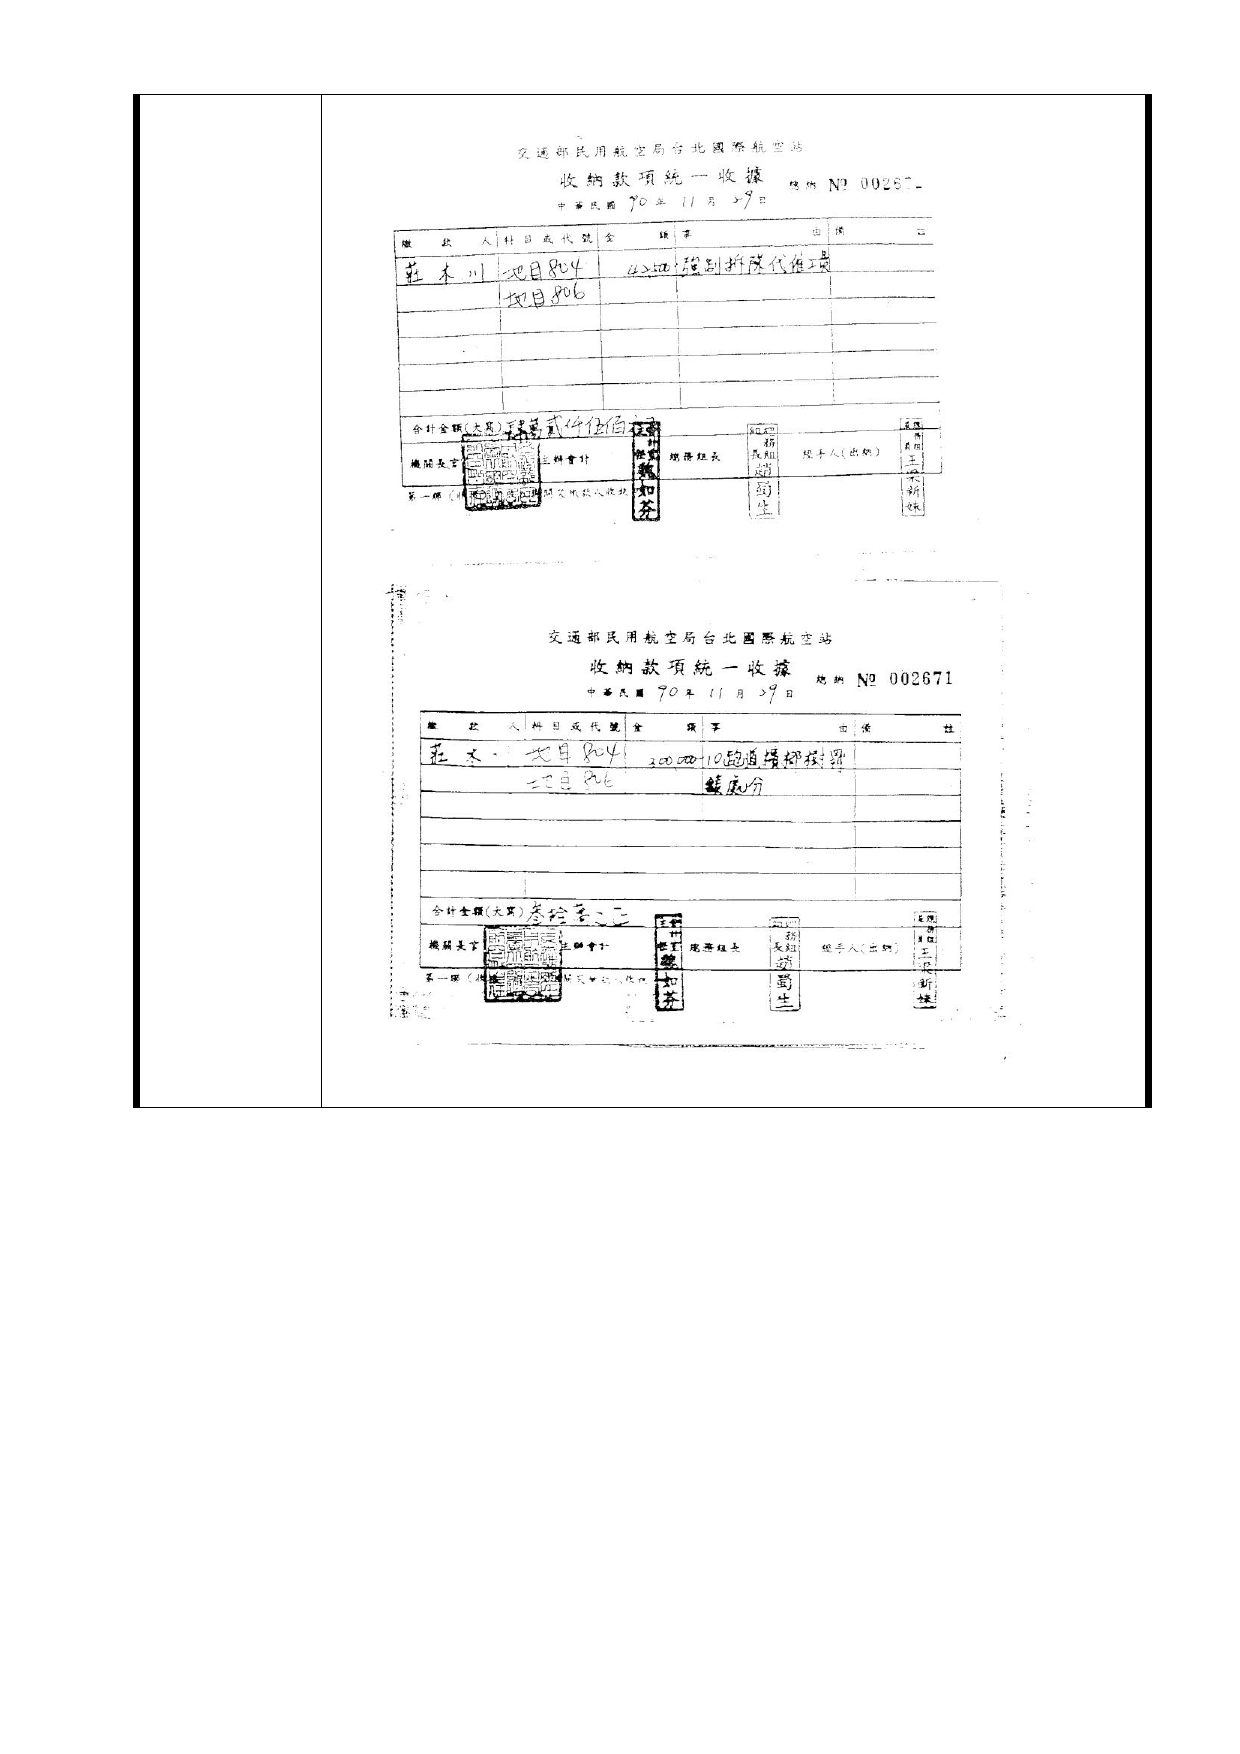 交通部民用航空局台北國際航空站
收納款項統一收據 總納 № 00267
中華民國 90 年 11 月 29 日
繳款人 科目或代號 金額 事由 備註
莊木川 地目804 42,500 強制拆除代僱工
地目806
合計金額(大寫) 肆萬貳仟伍佰
機關長官 主辦會計 主計室任 魏如芬 總務組長 總務組長 趙蜀生 經手人(出納) 王梁新妹
第一聯
交通部民用航空局台北國際航空站
收納款項統一收據 總納 № 002671
中華民國 90 年 11 月 29 日
繳款人 科目或代號 金額 事由 備註
莊木 地目804 300,000 10跑道檳榔樹罰
地目806 鍰處分
合計金額(大寫) 叁拾萬
機關長官 主辦會計 魏如芬 總務組長 趙蜀生 經手人(出納) 王梁新妹
第一聯